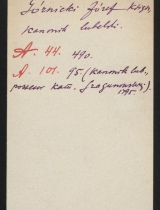 Górnicki Józef Ksiądz,
kanonik lubelski.
A. 44. 490.
A. 101. 95 (kanonik lub.,
proboszcz kam.
1795